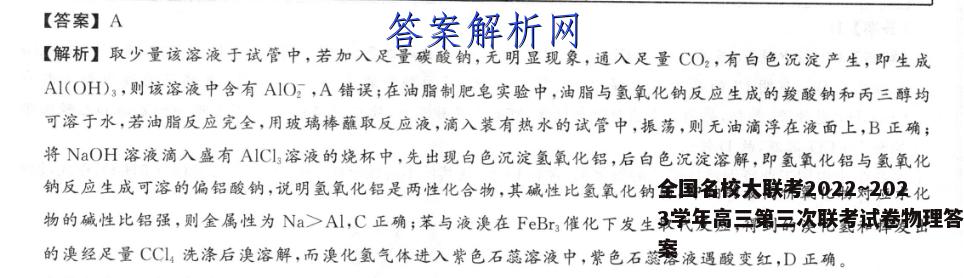 答案解析网
【答案】A
【解析】取少量该溶液于试管中,若加入足量碳酸钠,无明显现象,通入足量 CO₂,有白色沉淀产生,即生成
Al(OH)₃,则该溶液中含有 AlO₂⁻,A 错误;在油脂制肥皂实验中,油脂与氢氧化钠反应生成的羧酸钠和丙三醇均
可溶于水,若油脂反应完全,用玻璃棒蘸取反应液,滴入装有热水的试管中,振荡,则无油滴浮在液面上,B 正确;
将 NaOH 溶液滴入盛有 AlCl₃溶液的烧杯中,先出现白色沉淀氢氧化铝,后白色沉淀溶解,即氢氧化铝与氢氧化
钠反应生成可溶的偏铝酸钠,说明氢氧化铝是两性化合物,其碱性比氢氧化钠
物的碱性比铝强,则金属性为 Na>Al,C 正确;苯与液溴在 FeBr₃催化下发生
的溴经足量 CCl₄ 洗涤后溴溶解,而溴化氢气体进入紫色石蕊溶液中,紫色石蕊溶液遇酸变红,D 正确。
全国名校大联考2022~202
3学年高三第三次联考试卷物理答
案